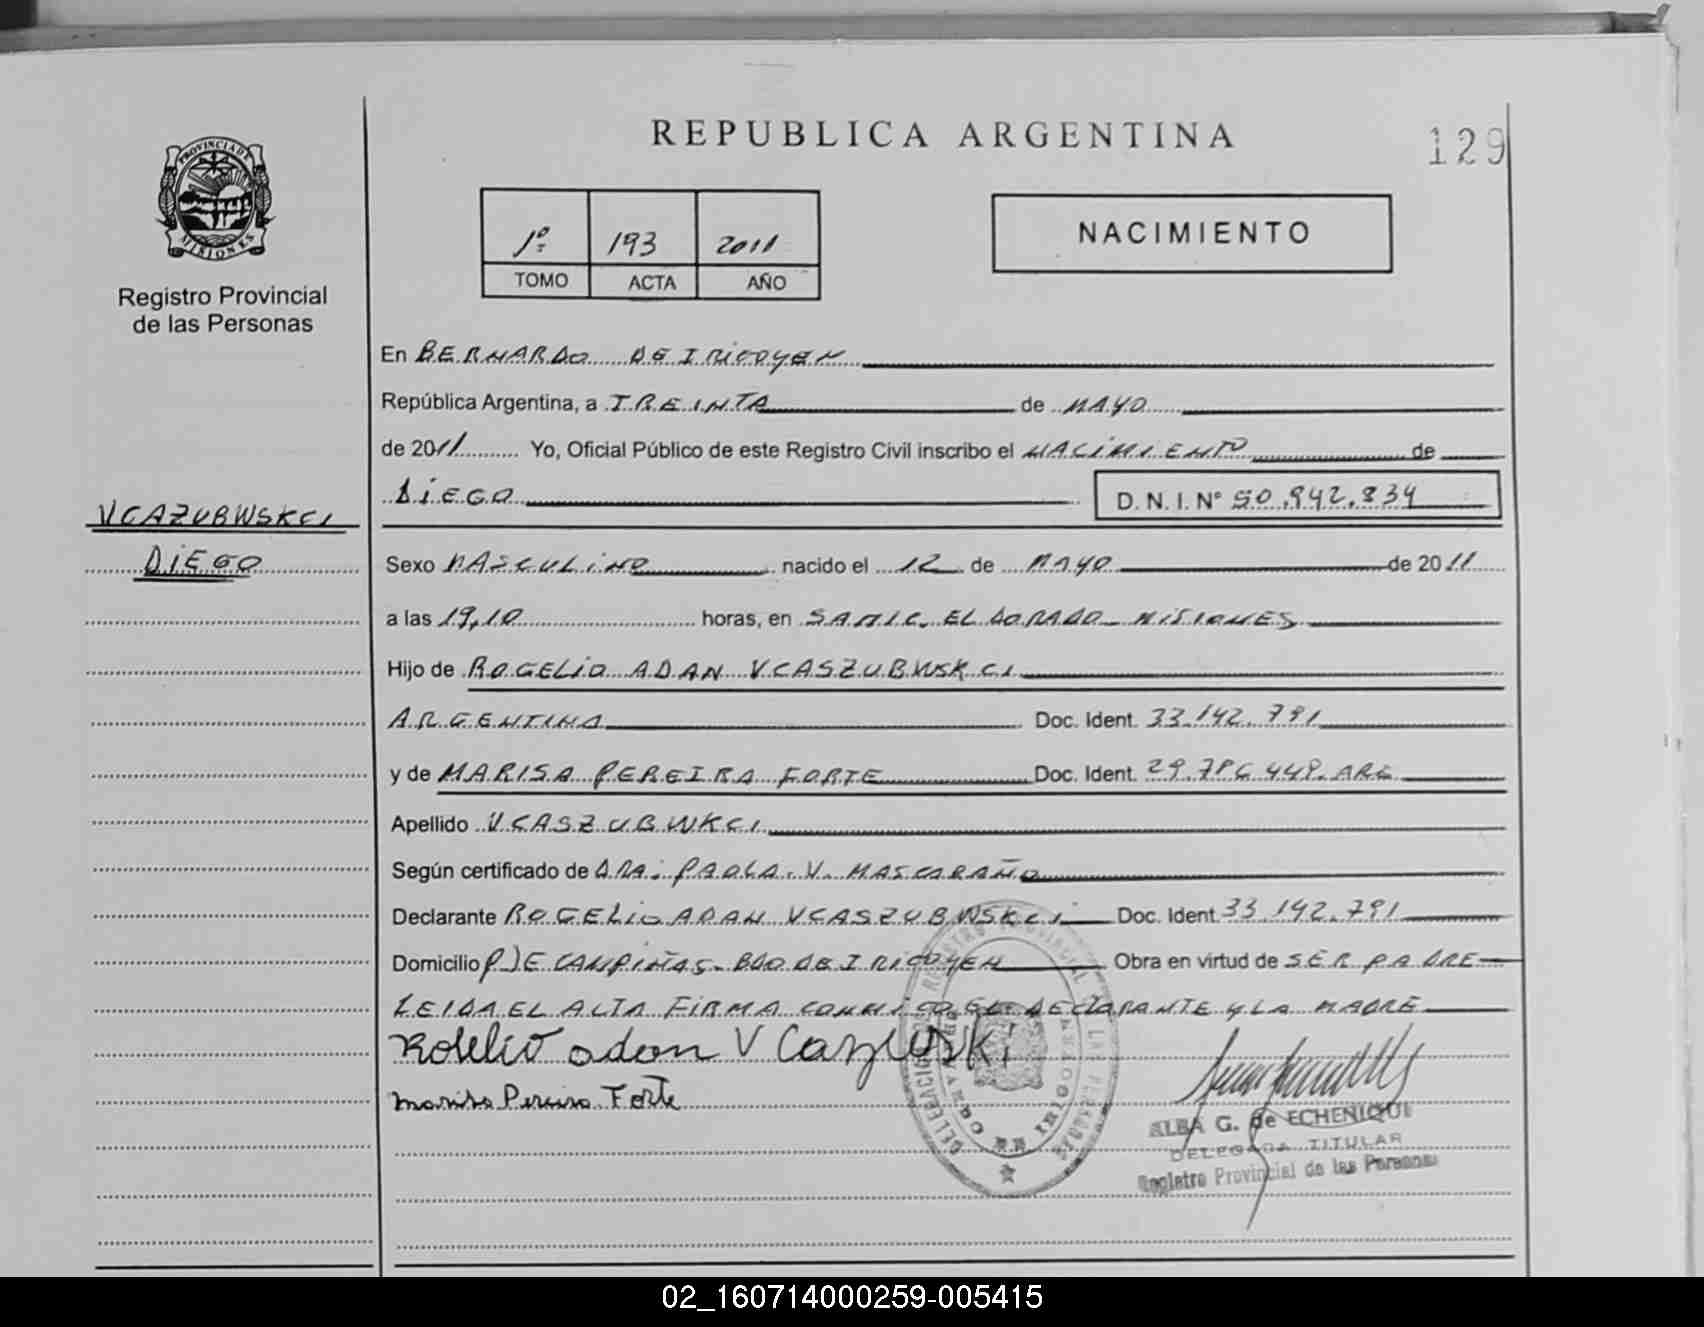 REPUBLICA ARGENTINA
129
PROVINCIA DE
MISIONES
Registro Provincial
de las Personas
1º 193 2011
TOMO ACTA AÑO
NACIMIENTO
En BERNARDO DE IRIGOYEN
República Argentina, a TREINTA de MAYO
de 2011 Yo, Oficial Público de este Registro Civil inscribo el NACIMIENTO de
DIEGO D. N. I. Nº 50.942.834
VCAZUBWSKCI
DIEGO
Sexo MASCULINO nacido el 12 de MAYO de 2011
a las 19,10 horas, en SAMIC. ELDORADO MISIONES
Hijo de ROGELIO ADAN VCASZUBWSKCI
ARGENTINA Doc. Ident. 33.142.791
y de MARISA PEREIRA FORTE Doc. Ident. ARG
Apellido VCASZUBWKCI
Según certificado de DRA. PAOLA. V. MASCARAÑO
Declarante ROGELIO ADAN VCASZUBWSKCI Doc. Ident. 33.142.791
Domicilio PJE CAMPIÑAS. BDO DE IRIGOYEN Obra en virtud de SER PADRE
LEIDA EL ACTA FIRMA CONMIGO EL DECLARANTE Y LA MADRE
Rolelio adan V Cazuski
marisa Pereira Forte
ALBA G. de ECHENIQUE
DELEGADA TITULAR
Registro Provincial de las Personas
02_160714000259-005415